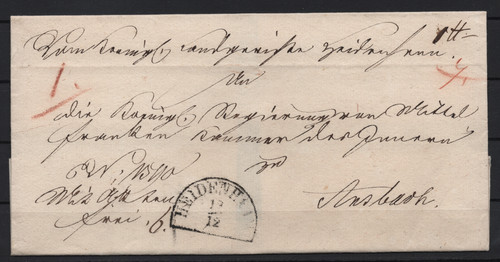 Vom Königl. Landgerichte Heidenheim.
An
die Königl. Regierung von Mittel
franken Kammer des Innern
zu
Ansbach.
Mit Akten
frei.
HEIDENHEIM
12
12